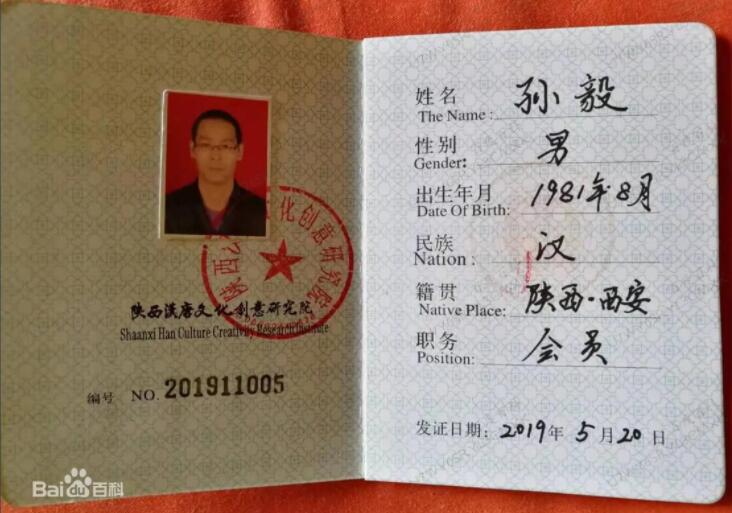 陕西汉唐文化创意研究院
Shaanxi Han Culture Creativity Research Institute
编号 NO. 201911005
姓名 孙毅
The Name:
性别 男
Gender:
出生年月 1981年8月
Date Of Birth:
民族 汉
Nation:
籍贯 陕西·西安
Native Place:
职务 会员
Position:
发证日期: 2019年5月20日
Bai du 百科